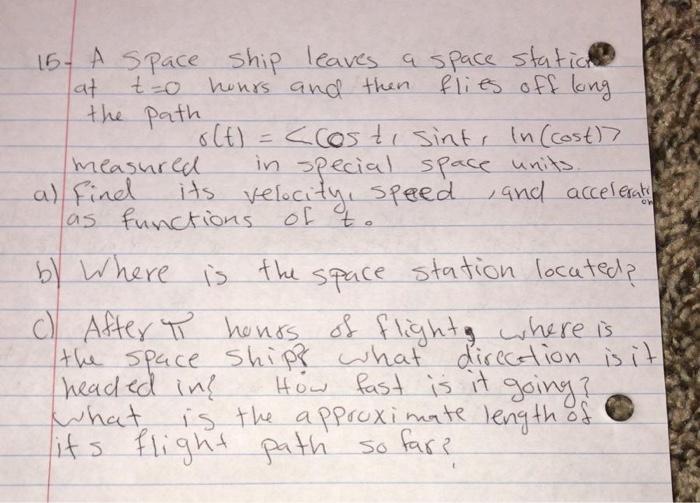 15- A space ship leaves a space station
at t=0 hours and then flies off long
the path
r(t) = <cos t, sin t, ln(cost)>
measured in special space units.
a) Find its velocity, speed, and acceleration
as functions of t.
b) Where is the space station located?
c) After π hours of flight, where is
the space ship? what direction is it
headed in? How fast is it going?
what is the approximate length of
its flight path so far?